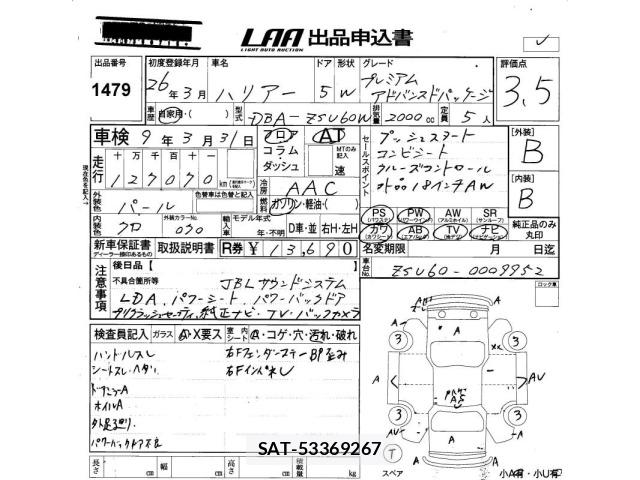 LAA 出品申込書
LIGHT AUTO AUCTION
出品番号
1479
初度登録年月
26年3月
車名
ハリアー
ドア 形状
5 W
グレード
プレミアム
アドバンスドパッケージ
評価点
3.5
車歴
自家用・( )
型式
DBA-ZSU60W
排気量
2000cc
定員
5人
車検 9年3月31日
フロア
コラム・
ダッシュ
AT
MTのみ記入
速
セールスポイント
プッシュスタート
コンビシート
クルーズコントロール
18インチAW
[外装]
B
[内装]
B
走行
十 万 千 百 十 一
127070
km
冷房
AAC
外装色
パール
色替車は色替と記入
燃料
ガソリン・軽油・( )
PS PW AW SR
(パワステ) (パワーウインド) (アルミホイル) (サンルーフ)
カワ AB TV ナビ
(カワシート) (エアバック) (ナビゲーション)
純正品のみ丸印
内装色
クロ
外装カラーNo.
070
輸入車
モデル年式
年・不明
D車・並
右H・左H
新車保証書
ディーラー捺印あるもの
取扱説明書
R券 ¥13,690
名変期限 月 日迄
車台No.
ZSU60-0009952
注意事項
後日品【 】
不具合箇所等
JBLサウンドシステム
LDA、パワーシート、パワーバックドア
プリクラッシュセーフティ、純正ナビ・TV・バックカメラ
ロック車
検査員記入
ガラス
A・X要ス
室内シート
A・コゲ・穴・汚れ・破れ
ハンドルスレ
シートスレ・ヘタリ
ドアミラーA
ホイルA
パワーバックドア不良
右Fフェンダーステー
右Fインパネ
A
3
AU
スペア
小A有・小U有
長さ cm 幅 cm 高さ cm 積載量 kg
SAT-53369267